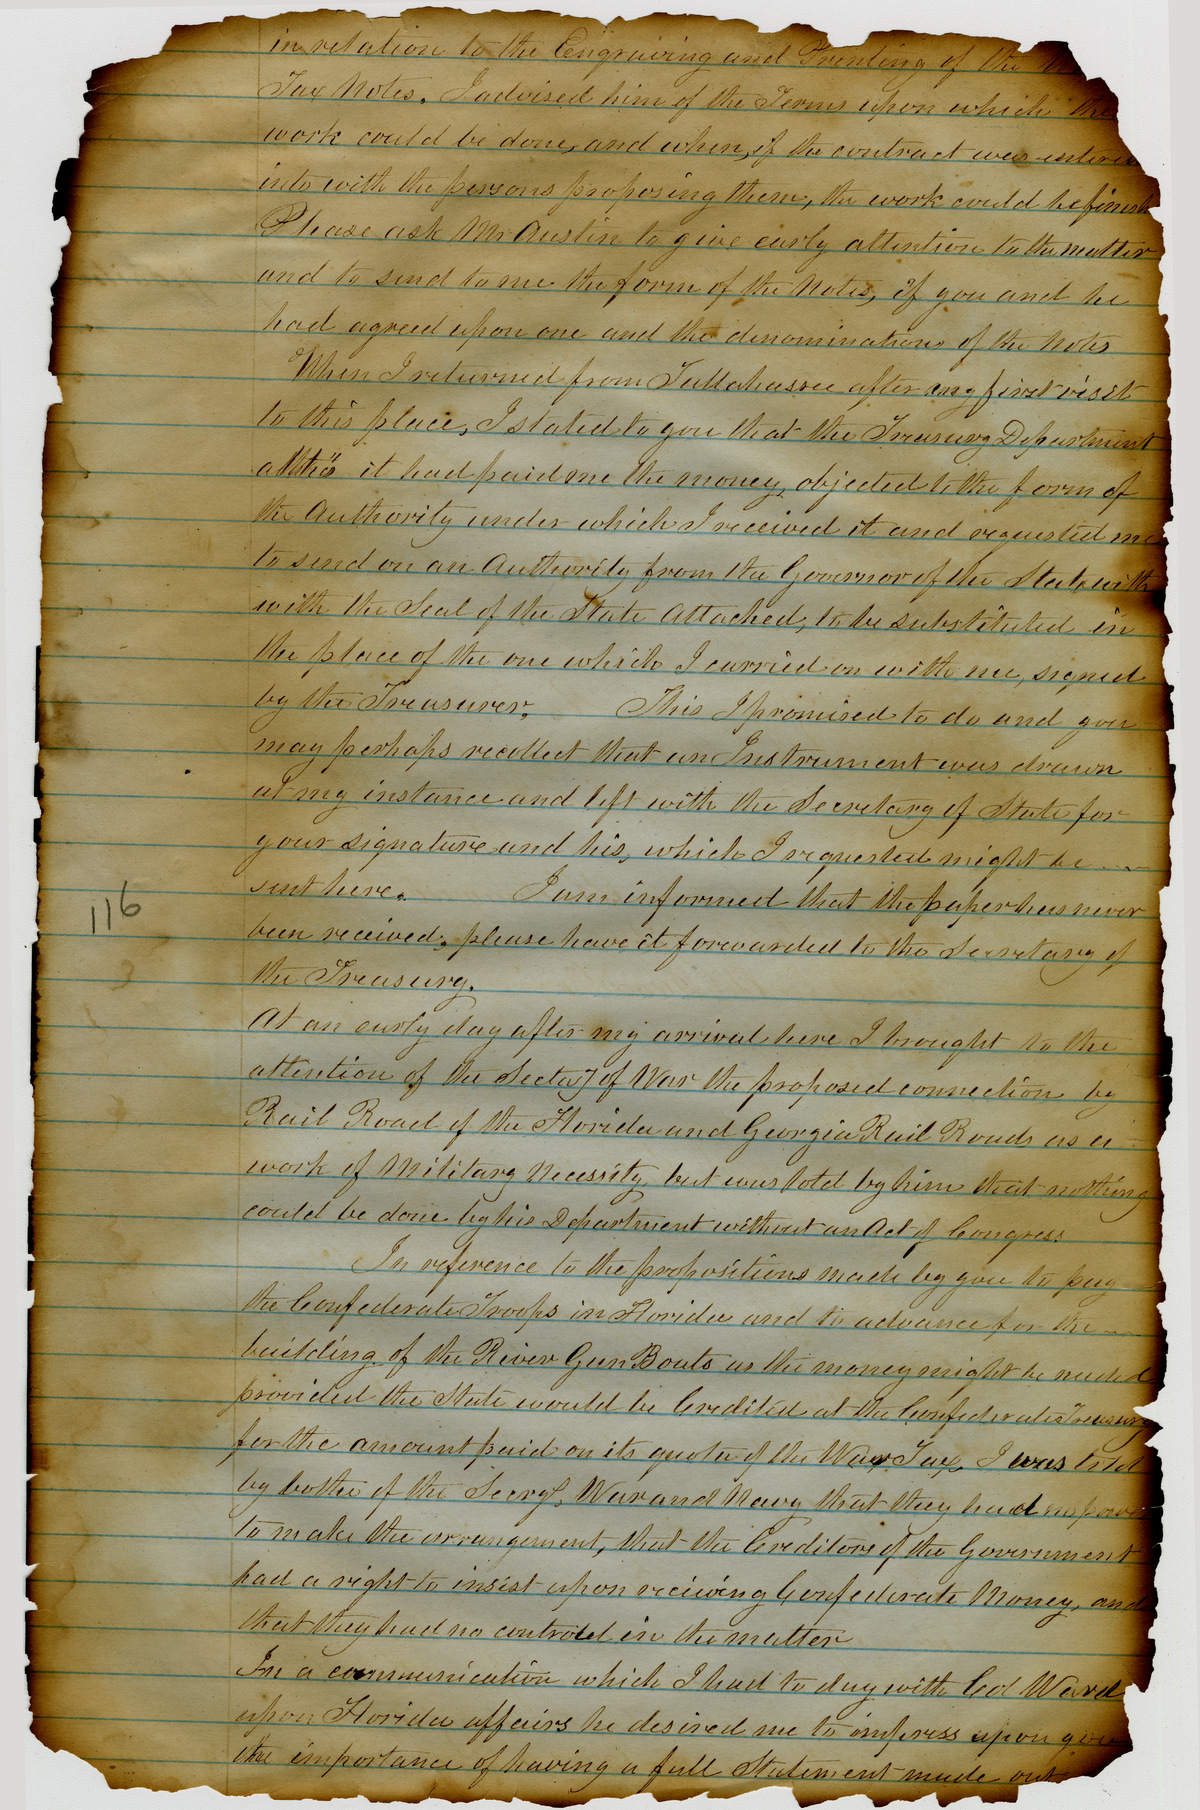 in relation to the Engraving and Printing of the
Tax Notes. I advised him of the Terms upon which the
work could be done, and when, if the contract was entered
into with the persons proposing them, the work could be finish
Please ask Mr Austin to give early attention to the matter
and to send to me the form of the Notes, if you and he
had agreed upon one and the denominations of the Notes
When I returned from Tallahassee after my first visit
to this place, I stated to you that the Treasury Department
altho' it had paid me the money, objected to the form of
the Authority under which I received it and requested me
to send on an Authority from the Governor of the State with
with the Seal of the State Attached, to be substituted in
the place of the one which I carried on with me, signed
by the Treasurer. This I promised to do and you
may perhaps recollect that an Instrument was drawn
at my instance and left with the Secretary of State for
your signature and his, which I requested might be
sent here. I am informed that the paper has never
116
been received, please have it forwarded to the Secretary of
the Treasury.
At an early day after my arrival here I brought to the
attention of the Sectary of War the proposed connection by
Rail Road of the Florida and Georgia Rail Roads as a
work of Military Necessity but was told by him that nothing
could be done by his Department without an Act of Congress
In reference to the propositions made by you to pay
the Confederate Troops in Florida and to advance for the
building of the River Gun Boats as the money might be needed
provided the State would be Credited at the Confederate Treasury
for the amount paid on its quota of the War Tax, I was told
by bothe of the Secrys, War and Navy that they had no power
to make the arrangement, that the Creditors of the Government
had a right to insist upon receiving Confederate Money, and
that they had no controld in the matter
In a communication which I had to day with Col Ward
upon Florida affairs he desired me to impress upon you
the importance of having a full Statement made out